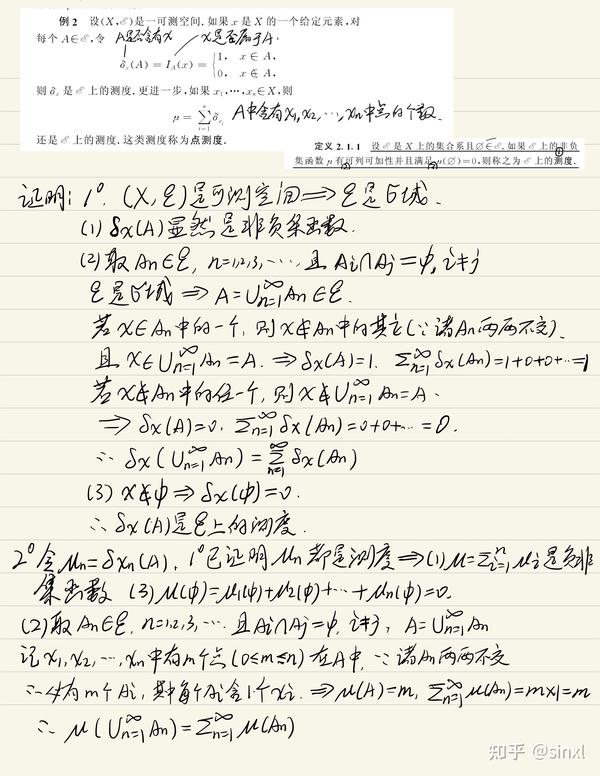 例 2 设(X,ℰ)是一可测空间.如果 x 是 X 的一个给定元素,对
每个 A∈ℰ,令 A是否含有x x是否属于A.
δₓ(A) = I_A(x) = { 1, x ∈ A,
0, x ∉ A,
则 δₓ 是 ℰ 上的测度.更进一步,如果 x₁,⋯,xₙ∈X,则
μ = ∑ᵢ₌₁ⁿ δₓᵢ A中含有x₁,x₂,⋯,xₙ中点的个数.
还是 ℰ 上的测度.这类测度称为点测度.
定义 2.1.1 设 ℰ 是 X 上的集合系且∅∈ℰ.如果 ℰ 上的非负①
集函数 μ 有可列可加性并且满足 μ(∅)=0,则称之为 ℰ 上的测度.
② ③
证明: 1°. (X,ℰ)是可测空间⟹ℰ是σ域.
(1) δx(A)显然是非负集函数.
(2)取An∈ℰ, n=1,2,3,⋯⋯且Ai∩Aj=φ, i≠j
ℰ是σ域⟹A=∪ₙ₌₁^∞An∈ℰ.
若x∈An中的一个,则x∉An中的其它(∵诸An两两不交).
且x∈∪ₙ₌₁^∞An=A.⟹δx(A)=1. ∑ₙ₌₁^∞δx(An)=1+0+0+⋯=1
若x∉An中的任一个,则x∉∪ₙ₌₁^∞An=A.
⟹δx(A)=0, ∑ₙ₌₁^∞δx(An)=0+0+⋯=0.
∴ δx(∪ₙ₌₁^∞An)=∑ₙ₌₁^∞δx(An)
(3) x∉φ⟹δx(φ)=0.
∴δx(A)是ℰ上的测度.
2°令μn=δxn(A), 1°已证明μn都是测度⟹(1)μ=∑ᵢ₌₁ⁿμi是负非
集函数 (3)μ(φ)=μ₁(φ)+μ₂(φ)+⋯+μn(φ)=0.
(2)取An∈ℰ, n=1,2,3,⋯且Ai∩Aj=φ, i≠j, A=∪ₙ₌₁^∞An
记x₁,x₂,⋯,xn中有m个点(0≤m≤n)在A中,∵诸An两两不交
∴必有m个Ai,其中每个Ai含1个xi.⟹μ(A)=m, ∑ₙ₌₁^∞μ(An)=m×1=m
∴ μ(∪ₙ₌₁^∞An)=∑ₙ₌₁^∞μ(An)
知乎 @sinxl